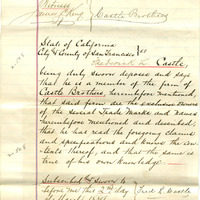 Witness
James L. King } Castle Brothers
State of California
City & County of San Francisco } ss
Frederick L. Castle,
being duly sworn deposes and says
that he is a member of the firm of
Castle Brothers, hereinbefore mentioned,
that said firm are the exclusive owners
of the several Trade Marks and names
hereinbefore mentioned and described;
that he has read the foregoing claims
and specifications and knows the con-
tents thereof, and that the same is
true of his own knowledge.
Subscribed & sworn to
before me this 2nd day } Fred L. Castle
of March